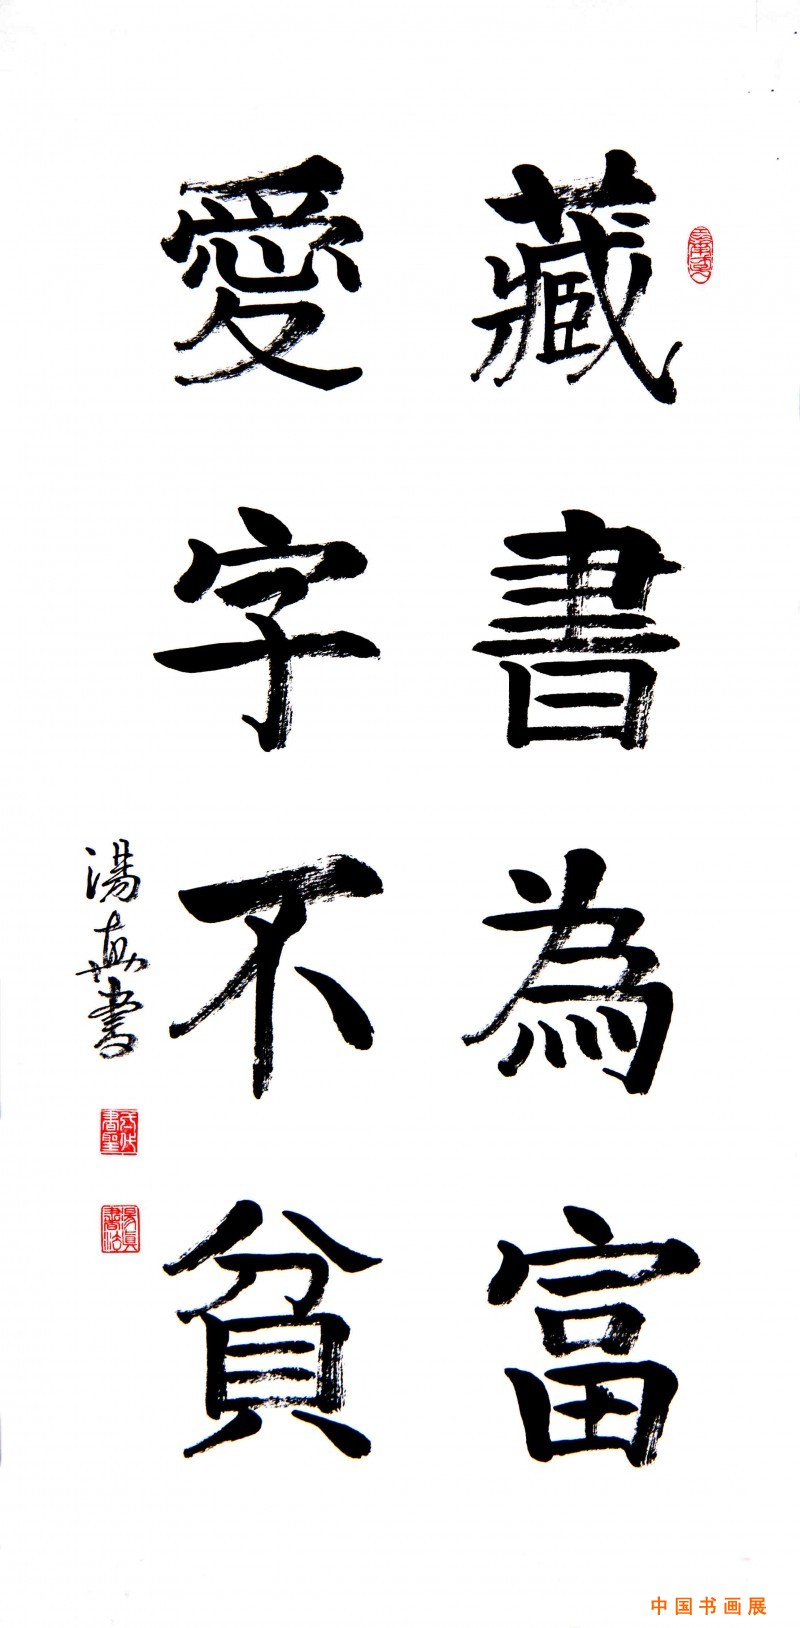 藏書為富
愛字不貧
湯真書
中国书画展